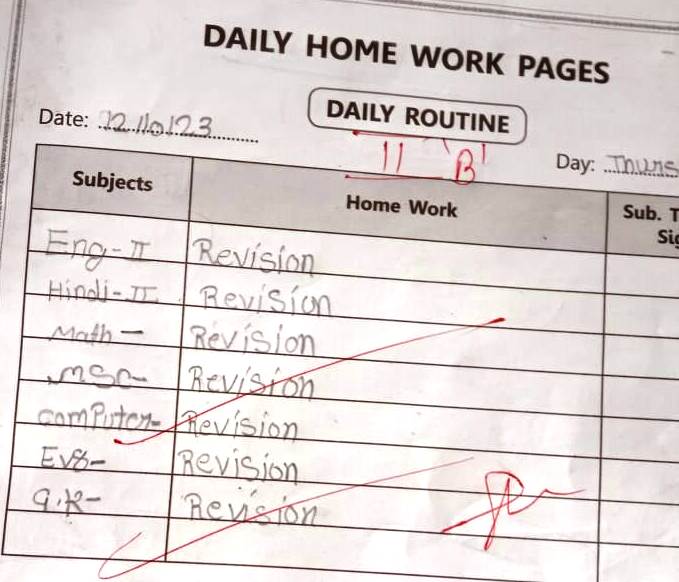 DAILY HOME WORK PAGES
DAILY ROUTINE
Date: 12/10/23
11 'B'
Day: Thurs
Subjects Home Work Sub. T
Sig
Eng-II Revision
Hindi-II Revision
Math- Revision
MSC- Revision
Computer- Revision
EVS- Revision
G.K- Revision